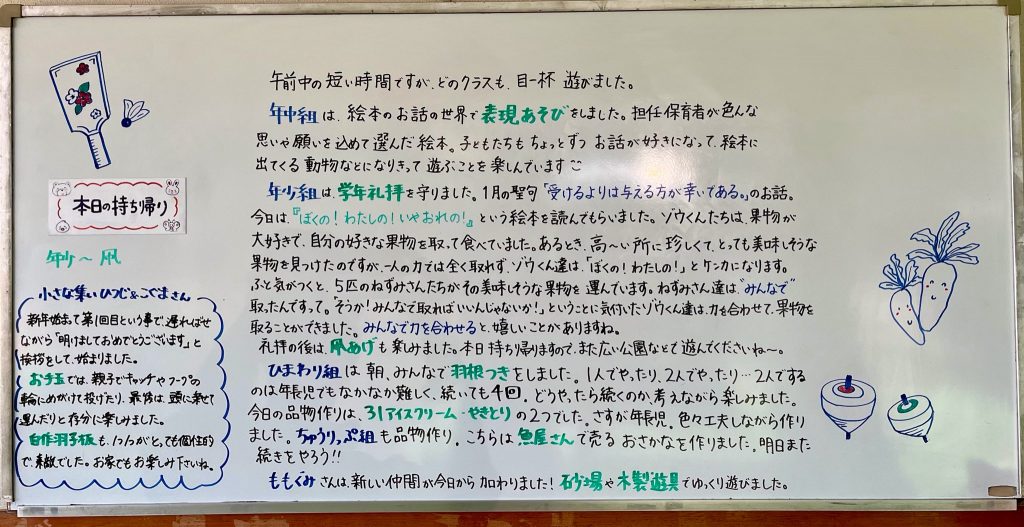 午前中の短い時間ですが、どのクラスも、目一杯 遊びました。
年中組は、絵本のお話の世界で表現あそびをしました。担任保育者が色んな
思いや願いを込めて選んだ絵本。子どもたちもちょっとずつ お話が好きになって、絵本に
出てくる動物などになりきって遊ぶことを楽しんでいます
年少組は学年礼拝を守りました。1月の聖句「受けるよりは与える方が幸いである。」のお話。
今日は、『ぼくの!わたしの!いやおれの!』という絵本を読んでもらいました。ゾウくんたちは、果物が
大好きで、自分の好きな果物を取って食べていました。あるとき、高〜い所に珍しくて、とっても美味しそうな
果物を見つけたのですが、一人の力では全く取れず、ゾウくん達は、「ぼくの!わたしの!」とケンカになります。
ふと気がつくと、5匹のねずみさんたちがその美味しそうな果物を運んでいます。ねずみさん達は“みんなで”
取ったんですって。「そうか!みんなで取ればいいんじゃないか!」ということに気付いたゾウくん達は、力を合わせて、果物を
取ることができました。みんなで力を合わせると、嬉しいことがありますね。
礼拝の後は、凧あげも楽しみました。本日持ち帰りますので、また広い公園などで遊んでくださいね〜。
ひまわり組は朝、みんなで羽根つきをしました。1人でやったり、2人でやったり…2人でする
のは年長児でもなかなか難しく、続いても4回。どうやったら続くのか、考えながら楽しみました。
今日の品物作りは、31アイスクリーム・やきとりの2つでした。さすが年長児、色々工夫しながら作り
ました。ちゅうりっぷ組も品物作り。こちらは魚屋さんで売るおさかなを作りました。明日また
続きをやろう!!
ももぐみさんは、新しい仲間が今日から加わりました!砂場や木製遊具でゆっくり遊びました。
本日の持ち帰り
年少〜凧
小さな集い ひつじ&こぐまさん
新年始まって第1回目という事で、遅ればせ
ながら「明けましておめでとうございます」と
挨拶をして、始まりました。
お手玉では、親子でキャッチやフープの
輪にめがけて投げたり、最後は、頭に乗せて
運んだりと存分に楽しみました。
自作羽子板も、1つ1つがとっても個性的
で、素敵でした。お家でもお楽しみ下さいね。